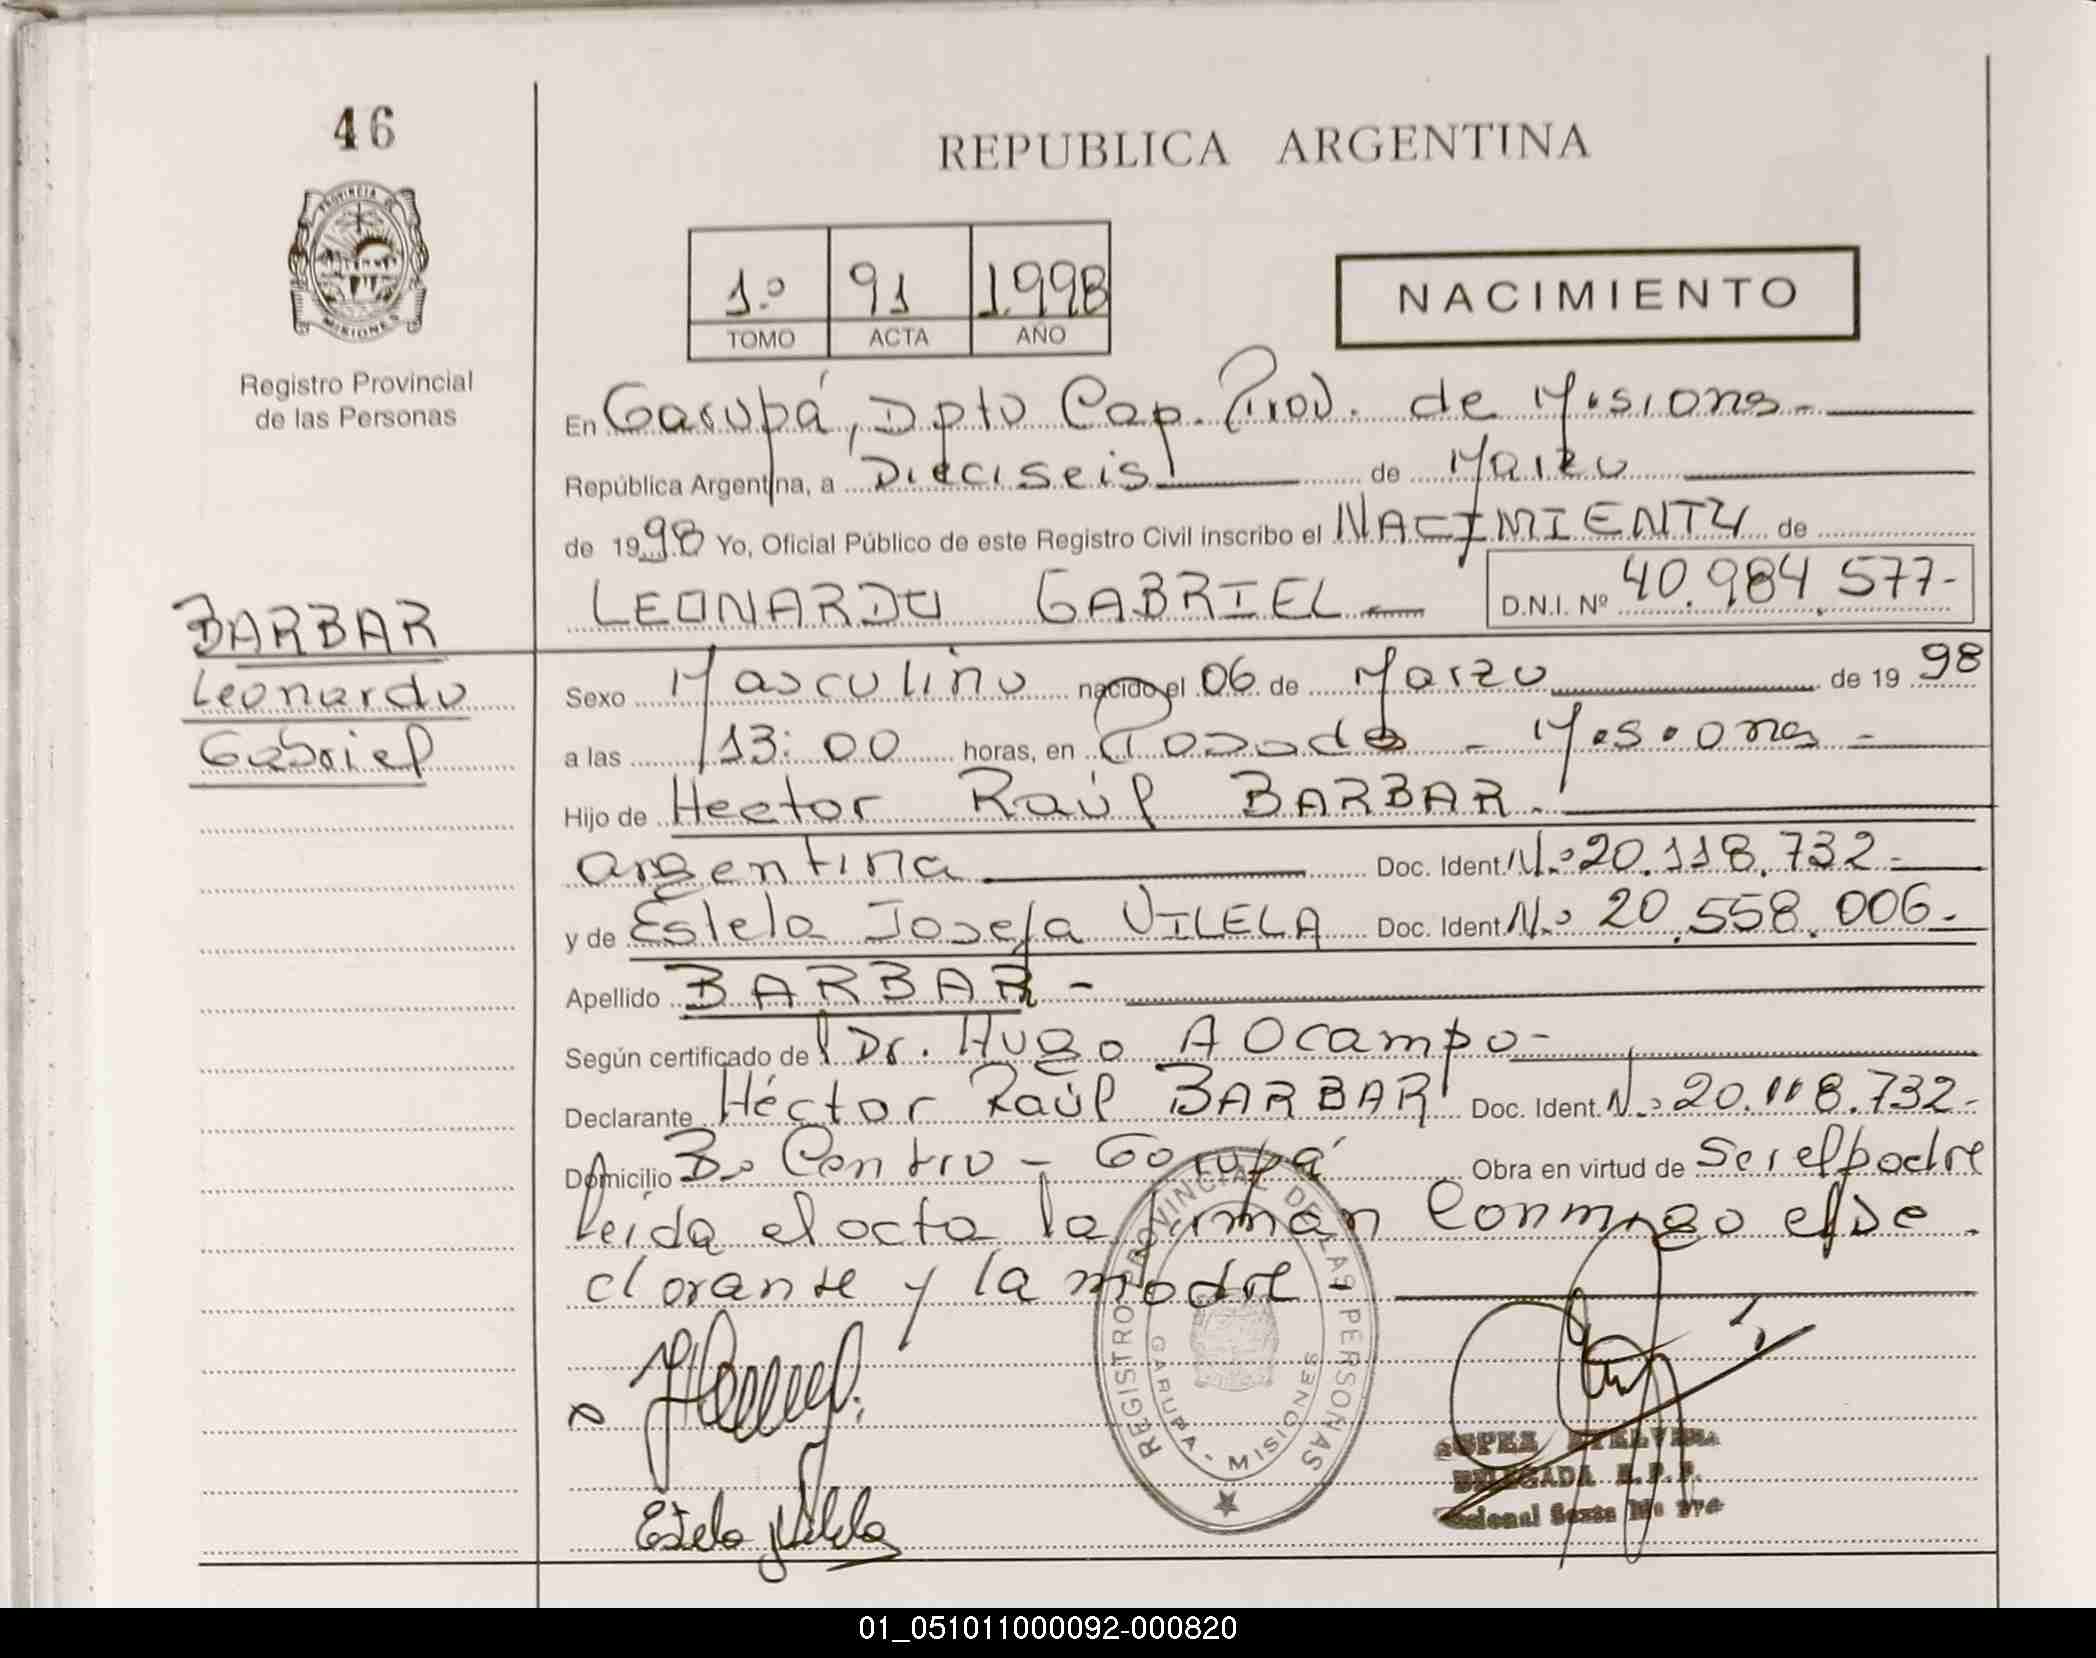 46
REPUBLICA ARGENTINA
PROVINCIA DE
MISIONES
Registro Provincial
de las Personas
1.º 91 1.998
TOMO ACTA AÑO
NACIMIENTO
En Garupá, Dpto Cap. Prov. de Misiones -
República Argentina, a Dieciseis de Marzo
de 1998 Yo, Oficial Público de este Registro Civil inscribo el NACIMIENTO de
LEONARDO GABRIEL - D.N.I. Nº 40.984.577-
BARBAR
Leonardo
Gabriel
Sexo Masculino nacido el 06 de Marzo de 1998
a las 13:00 horas, en Posadas - Misiones -
Hijo de Hector Raúl BARBAR -
argentina Doc. Ident. N.º 20.118.732-
y de Estela Josefa VILELA Doc. Ident. N.º 20.558.006-
Apellido BARBAR -
Según certificado del Dr. Hugo A Ocampo-
Declarante Héctor Raúl BARBAR Doc. Ident. N.º 20.118.732-
Domicilio Bº Centro - Garupá Obra en virtud de Ser el padre
leida el acta la firman conmigo el de-
clarante y la madre -
REGISTRO PROVINCIAL DE LAS PERSONAS
GARUPA - MISIONES
Estela Vilela
DELEGADA R.P.P.
01_051011000092-000820